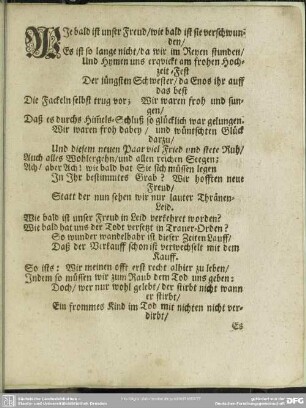 WJe bald ist unsr Freud/wie bald ist sie verschwun-
den/
Es ist so lange nicht/da wir im Reyen stunden/
Und Hymen uns erqvickt am frohen Hoch-
zeit-Fest
Der jüngsten Schwester/da Enos ihr auff
das best
Die Fackeln selbst trug vor; Wir waren froh und sun-
gen/
Daß es durchs Him̃els-Schluß so glücklich war gelungen.
Wir waren froh dabey/ und wünschten Glück
darzu/
Und diesem neuen Paar viel Fried und stete Ruh/
Auch alles Wohlergehn/und allen reichen Seegen:
Ach/ aber Ach! wie bald hat Sie sich müssen legen
In Ihr bestimmtes Grab? Wir hofften neue
Freud/
Statt der nun sehen wir nur lauter Thränen-
Leid.
Wie bald ist unser Freud in Leid verkehret worden?
Wie bald hat uns der Todt versetzt in Trauer-Orden?
So wunder wandelbahr ist dieser Zeiten Lauff/
Daß der Verkauff schon ist verwechselt mit dem
Kauff.
So ists: Wir meinen offt erst recht allhier zu leben/
Indem so müssen wir zum Raub dem Tod uns geben:
Doch/wer nur wohl gelebt/der stirbt nicht wann
er stirbt/
Ein frommes Kind im Tod mit nichten nicht ver-
dirbt/
Es